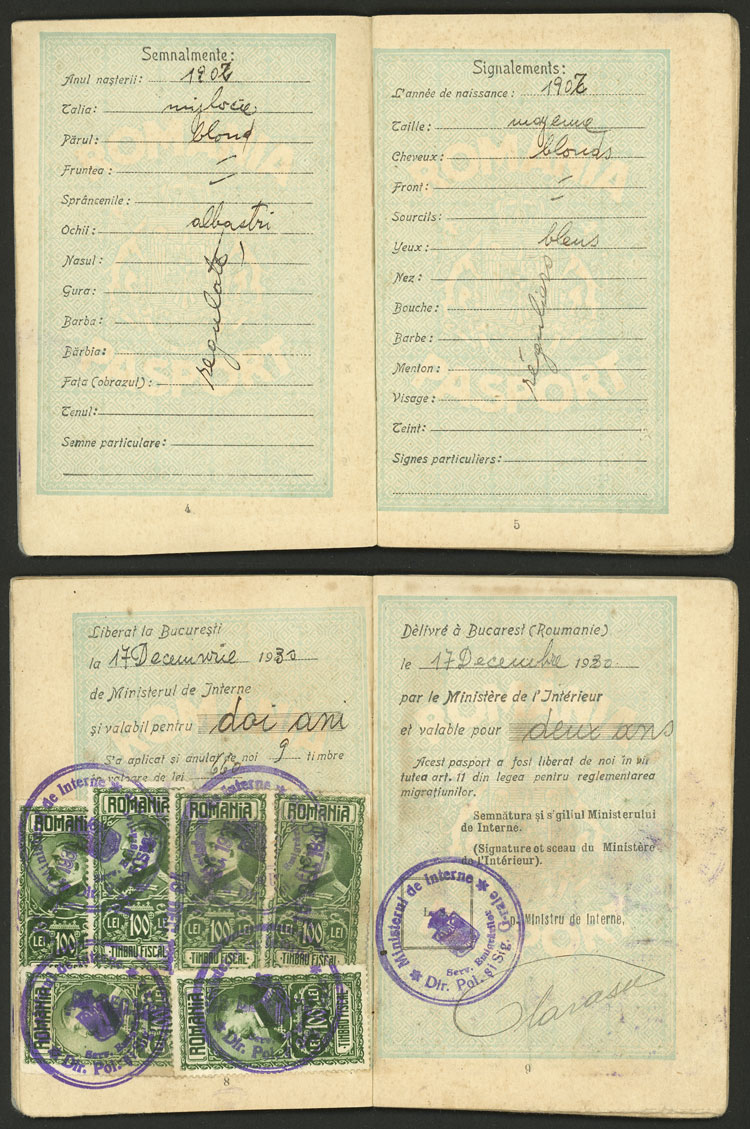 Semnalmente:
Anul nașterii: 1907
Talia: mijlocie
Părul: blond
Fruntea:
Sprâncenile:
Ochii: albastri
Nasul:
Gura:
Barba:
Bărbia:
Fața (obrazul):
Tenul:
Semne particulare:
regulate
4
Signalements:
L'année de naissance: 1907
Taille: moyenne
Cheveux: blonds
Front:
Sourcils:
Yeux: bleus
Nez:
Bouche:
Barbe:
Menton:
Visage:
Teint:
Signes particuliers:
réguliers
5
ROMANIA
PASPORT
ROMANIA
PASPORT
Liberat la București
la 17 Decemvrie 1930
de Ministerul de Interne
și valabil pentru doi ani
S'a aplicat și anulat de noi 9 timbre
valoare de lei
ROMANIA
LEI 100
ROMANIA
LEI 100
-TIMBRU FISCAL-
ROMANIA
LEI 100
-TIMBRU FISCAL-
ROMANIA
LEI 100
-TIMBRU FISCAL-
ROMANIA
ROMANIA
100 LEI
-TIMBRU FISCAL-
Dir. Pol. și Sig.
8
Délivré à Bucarest (Roumanie)
le 17 Decembre 1930
par le Ministère de l'Intérieur
et valable pour deux ans
Acest pasport a fost liberat de noi în vir
tutea art. 11 din legea pentru reglementarea
migrațiunilor.
Semnătura și s'giliul Ministerului
de Interne.
(Signature et sceau du Ministère
de l'Intérieur).
p. Ministru de Interne,
Ministerul de Interne
Dir. Pol. și Sig.
9